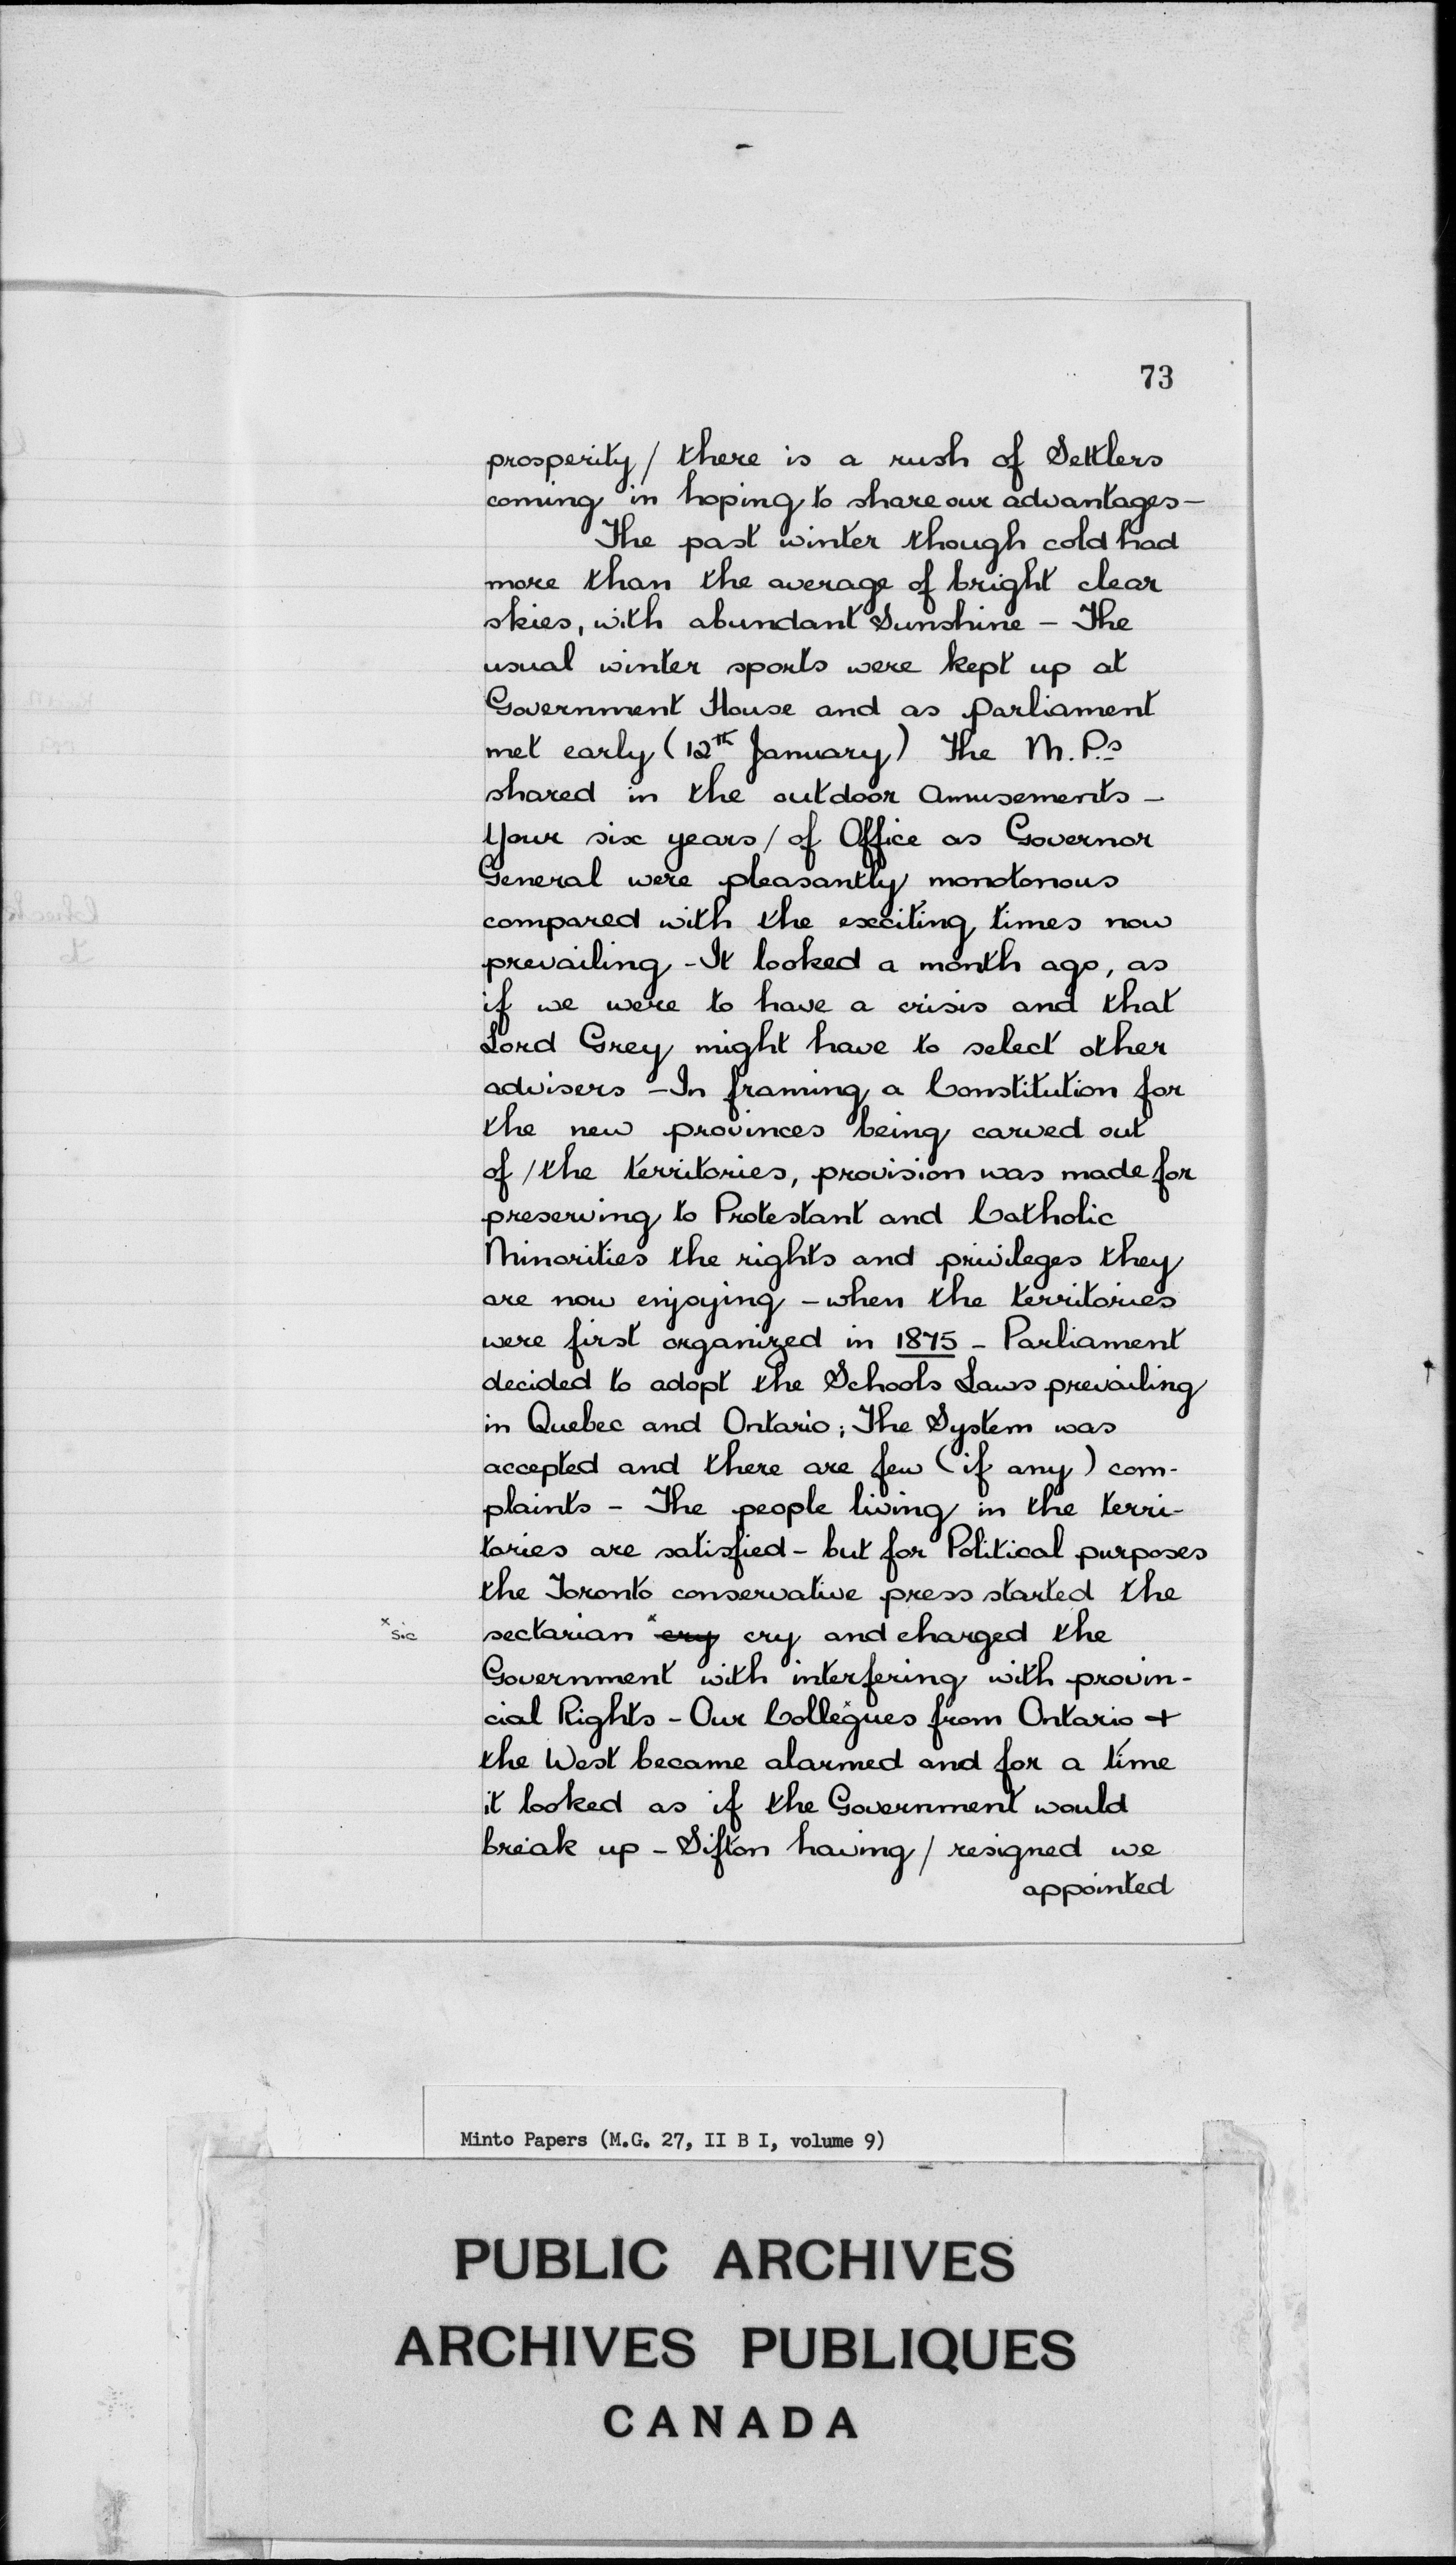 73
prosperity / there is a rush of Settlers
coming in hoping to share our advantages –
The past winter though cold had
more than the average of bright clear
skies, with abundant Sunshine – The
usual winter sports were kept up at
Government House and as Parliament
met early (12th January) The M.Ps
shared in the outdoor Amusements –
Your six years / of Office as Governor
General were pleasantly monotonous
compared with the exciting times now
prevailing – It looked a month ago, as
if we were to have a crisis and that
Lord Grey might have to select other
advisers – In framing a Constitution for
the new provinces being carved out
of / the territories, provision was made for
preserving to Protestant and Catholic
Minorities the rights and privileges they
are now enjoying – when the territories
were first organized in 1875 – Parliament
decided to adopt the Schools Laws prevailing
in Quebec and Ontario; The System was
accepted and there are few (if any) com-
plaints – The people living in the terri-
tories are satisfied – but for Political purposes
the Toronto conservative press started the
x sic sectarian x cry cry and charged the
Government with interfering with provin-
cial Rights – Our Collegues from Ontario +
the West became alarmed and for a time
it looked as if the Government would
break up – Sifton having / resigned we
appointed
Minto Papers (M.G. 27, II B I, volume 9)
PUBLIC ARCHIVES
ARCHIVES PUBLIQUES
CANADA